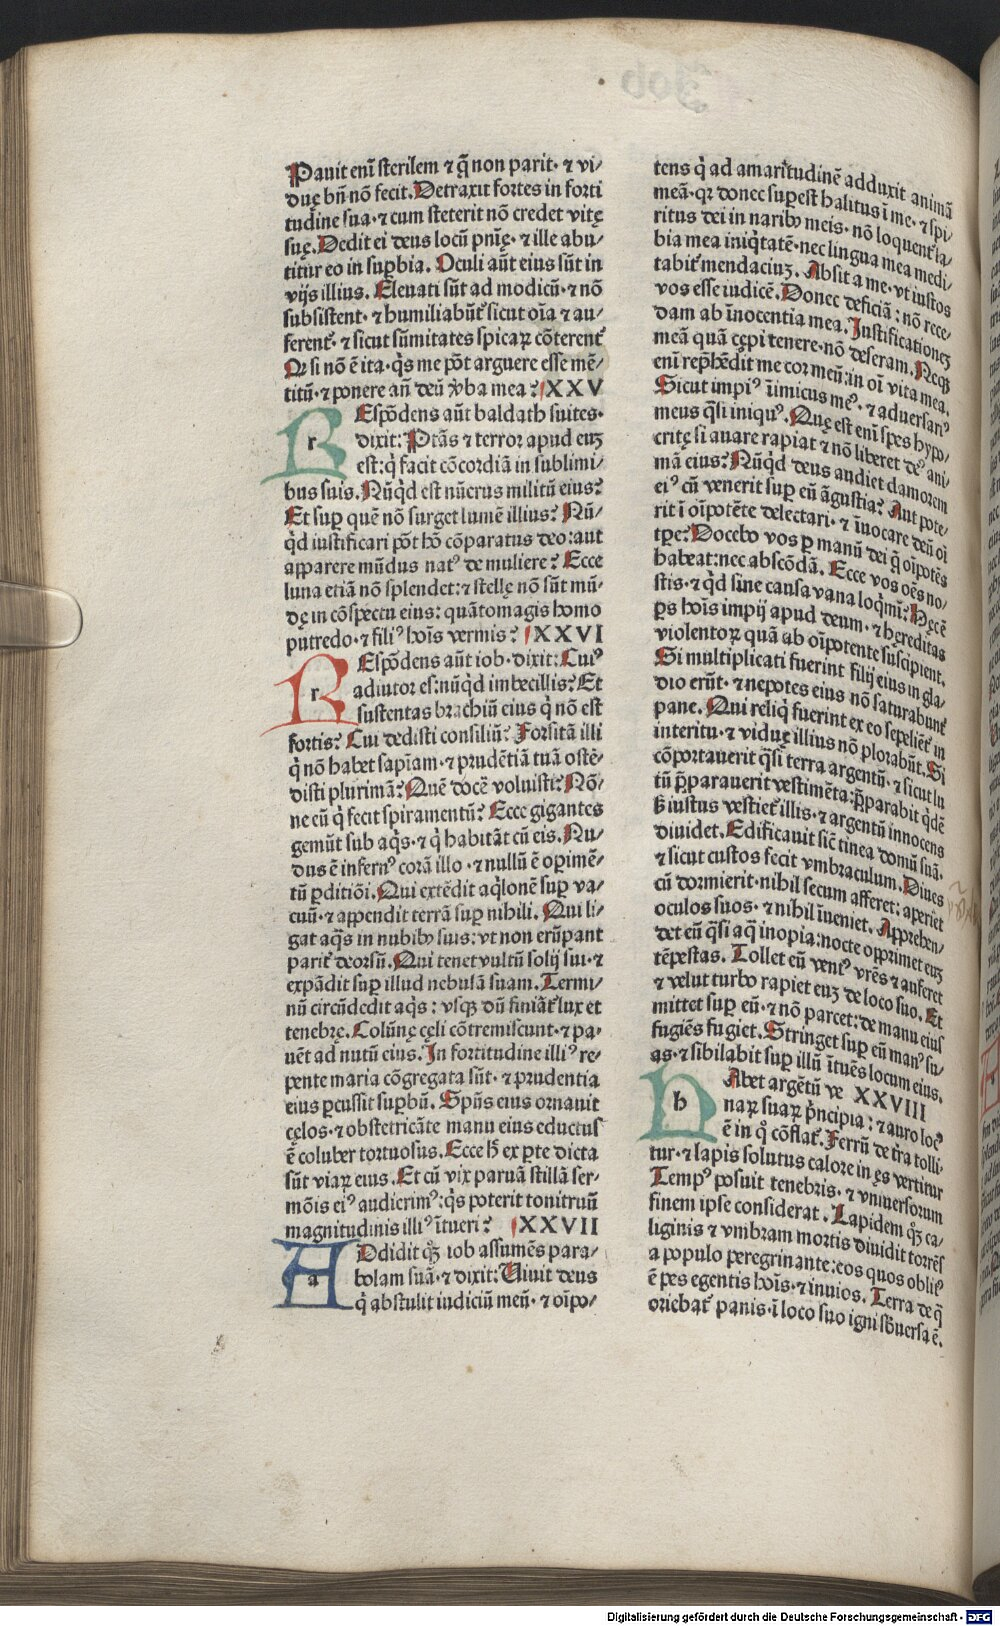 Pauit enī sterilem ⁊ q̄ non parit· ⁊ vi/
duę bn̄ nō fecit. Detraxit fortes in forti
tudine sua·⁊ cum steterit nō credet vitę
suę. Dedit ei deus locū pnīę· ⁊ ille abu/
titur eo in suꝑbia. Oculi aūt eius sūt in
vijs illius. Eleuati sūt ad modicū·⁊ nō
subsistent· ⁊ humiliabūt᷑ sicut oīa ⁊ au/
ferent᷑· ⁊ sicut sūmitates spicaꝝ cōterent᷑
Qꝛ si nō ē ita· q̄s me pōt arguere esse mē/
titū·⁊ ponere añ deū v̾ba mea? XXV
r Espōdens aūt baldath suites·
dixit: Ptās ⁊ terror apud euꝫ
est: q̇ facit cōcordiā in sublimi/
bus suis. Nūq̇d est nūerus militū eius?
Et suꝑ quē nō surget lumē illius? Nū/
q̇d iustificari pōt hō cōparatus deo: aut
apparere mūdus natꝰ de muliere? Ecce
luna etiā nō splendet: ⁊ stellę nō sūt mū/
dę in cōspectu eius: quātomagis homo
putredo·⁊ filiꝰ hoīs vermis? XXVI
r Espōdens aūt iob· dixit: Cuiꝰ
adiutor es: nūq̇d imbecillis? Et
sustentas brachiū eius q̇ nō est
fortis? Cui dedisti consiliū? Forsitā illi
q̇ nō habet sapīam·⁊ prudētiā tuā ostē/
disti plurimā? Quē docē voluisti? Nō/
ne eū q̇ fecit spiramentū? Ecce gigantes
gemūt sub aq̇s·⁊ q̇ habitāt cū eis. Nu/
dus ē infernꝰ corā illo ·⁊ nullū ē oꝑimē/
tū ꝑditiōi. Qui extēdit aq̇lonē suꝑ va/
cuū·⁊ appendit terrā suꝑ nihili. Qui li/
gat aq̄s in nubibꝰ suis: vt non erūpant
parit᷑ deorsū. Qui tenet vultū solij sui·⁊
expādit suꝑ illud nebulā suam. Termi/
nū circūdedit aq̇s : vsqꝫ dū finiāt᷑ lux et
tenebrę. Colūnę cęli cōtremiscunt·⁊ pa/
uēt ad nutū eius. In fortitudine illiꝰ re/
pente maria cōgregata sūt·⁊ prudentia
eius ꝑcussit suꝑbū. Spūs eius ornauit
cęlos·⁊ obstetricāte manu eius eductus
ē coluber tortuosus. Ecce h̄ ex ꝑte dicta
sūt viaꝝ eius. Et cū vix paruā stillā ser/
mōis eiꝰ audierimꝰ: q̇s poterit tonitruū
magnitudinis illiꝰ ītueri? XXVII
a Ddidit qͦꝫ iob assumēs para/
bolam suā·⁊ dixit: Viuit deus
q̇ abstulit iudiciū meū·⁊ oīpo/
tens q̇ ad amaritudinē adduxit animā
meā· qꝛ donec suꝑest halitus ī me·⁊ spi/
ritus dei in naribꝰ meis· nō loquent᷑ la/
bia mea iniq̇tatē· nec lingua mea medi/
tabit᷑ mendaciuꝫ. Absit a me· vt iustos
vos esse iudicē. Donec deficiā: nō rece/
dam ab īnocentia mea. Iustificationeꝫ
meā quā cępi tenere· nō deseram. Neqꝫ
enī repͣhēdit me cor meū: in oī vita mea.
Sicut impiꝰ īimicus meꝰ·⁊ aduersariꝰ
meus q̄si iniquꝰ. Quę est enī spes hypo/
critę si auare rapiat ⁊ nō liberet deꝰ ani/
mā eius? Nūq̇d deus audiet clamorem
eiꝰ cū venerit suꝑ eū āgustia? Aut pote/
rit ī oīpotēte delectari·⁊ īuocare deū oī
tꝑe? Docebo vos ꝑ manū dei q̇ oīpotēs
habeat: nec abscōdā. Ecce vos oēs no/
stis·⁊ q̇d sine causa vana loq̇mī? Hęc ē
ꝑs hoīs impij apud deum·⁊ hęreditas
violentoꝝ quā ab oīpotente suscipient.
Si multiplicati fuerint filij eius in gla/
dio erūt·⁊ nepotes eius nō saturabunt᷑
pane. Qui reliq̇ fuerint ex eo sepeliēt᷑ in
interitu·⁊ viduę illius nō plorabūt. Si
cōportauerit q̄si terra argentū·⁊ sicut lu
tū p̄parauerit vestimēta: p̄parabit q̇dē
sꝫ iustus vestiet᷑ illis·⁊ argentū innocens
diuidet. Edificauit sic̄ tinea domū suā·
⁊ sicut custos fecit vmbraculum. Diues
cū dormierit· nihil secum afferet: aperiet
oculos suos·⁊ nihil īueniet. Apprehen/
det eū q̄si aq̄ inopia: nocte opprimet euꝫ
tēpestas. Tollet eū ventꝰ vrēs ⁊ auferet
⁊ velut turbo rapiet euꝫ de loco suo. Et
mittet suꝑ eū·⁊ nō parcet: de manu eius
fugiēs fugiet. Stringet suꝑ eū manꝰ su/
as·⁊ sibilabit suꝑ illū ītuēs locum eius.
h Abet argētū ve XXVIII
naꝝ suaꝝ p̄ncipia: ⁊ auro locꝰ
ē in qͦ cōflat᷑. Ferrū de tr̄a tolli/
tur·⁊ lapis solutus calore in ęs vertitur
Tempꝰ posuit tenebris·⁊ vniuersorum
finem ipse considerat. Lapidem qͦꝫ ca/
liginis ⁊ vmbram mortis diuidit torrēs
a populo peregrinante: eos quos oblitꝰ
ē pes egentis hoīs·⁊ inuios. Terra de q̄
oriebat᷑ panis· ī loco suo igni sb̄uersa ē.
Digitalisierung gefördert durch die Deutsche Forschungsgemeinschaft - DFG